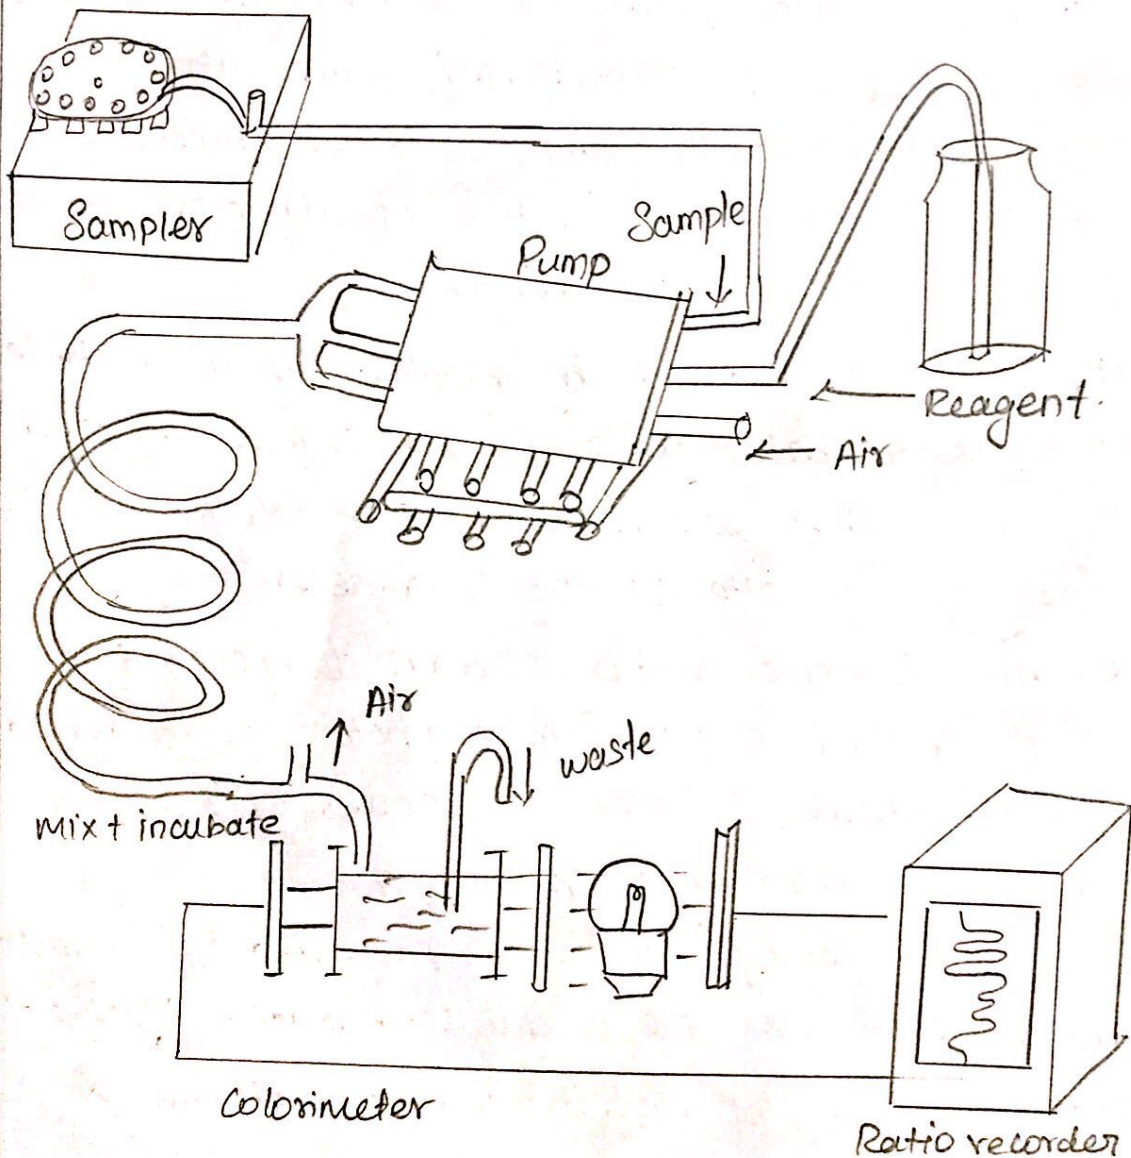 Sampler
Sample
Pump
Reagent.
Air
Air
waste
Mix + incubate
Colorimeter
Ratio recorder